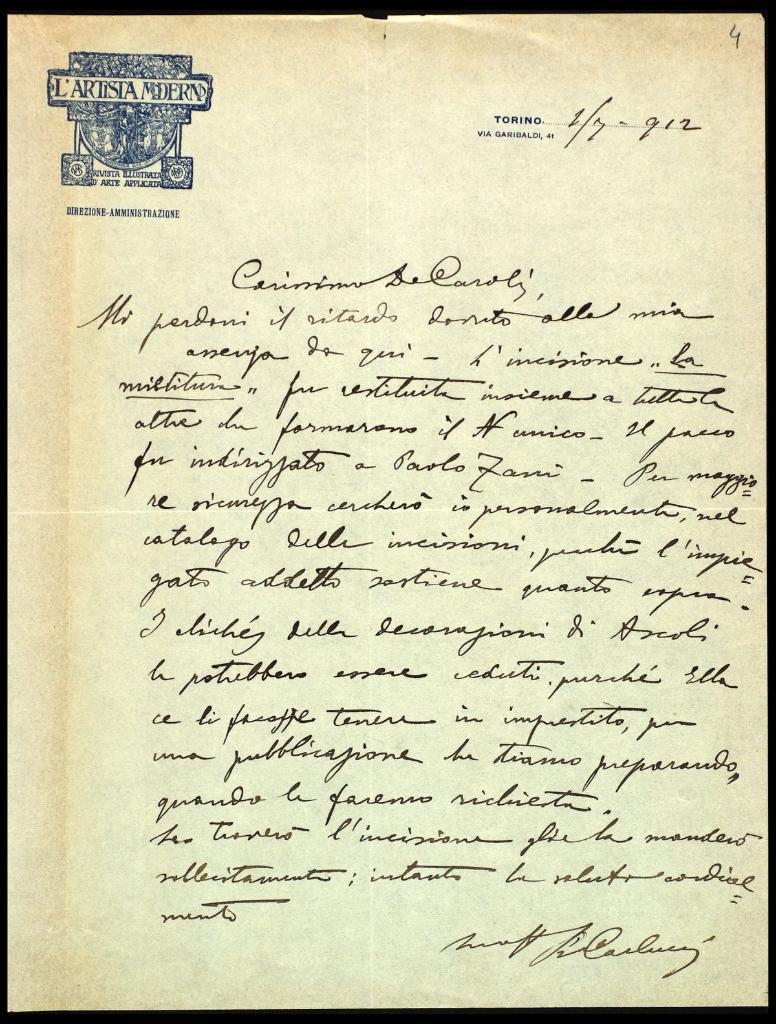 4
L'ARTISTA MODERNO
RIVISTA ILLUSTRATA
D'ARTE APPLICATA
DIREZIONE-AMMINISTRAZIONE
TORINO. 2/7 - 912
VIA GARIBALDI, 41
Carissimo De Carolis,
Mi perdoni il ritardo dovuto alla mia
assenza da qui - L'incisione „La
mietitura" fu restituita insieme a tutte le
altre che formarono il N unico - Il pacco
fu indirizzato a Paolo Zani - Per maggio=
re sicurezza cercherò io personalmente, nel
catalogo delle incisioni, perchè l'impie=
gato addetto sostiene quanto sopra -
I clichés delle decorazioni di Ascoli
le potrebbero essere ceduti, purché Ella
ce li facesse tenere in imprestito, per
una pubblicazione che stiamo preparando,
quando le faremo richiesta.
Se troverò l'incisione gliela manderò
sollecitamente; intanto la saluto cordial=
mente
Carlucci